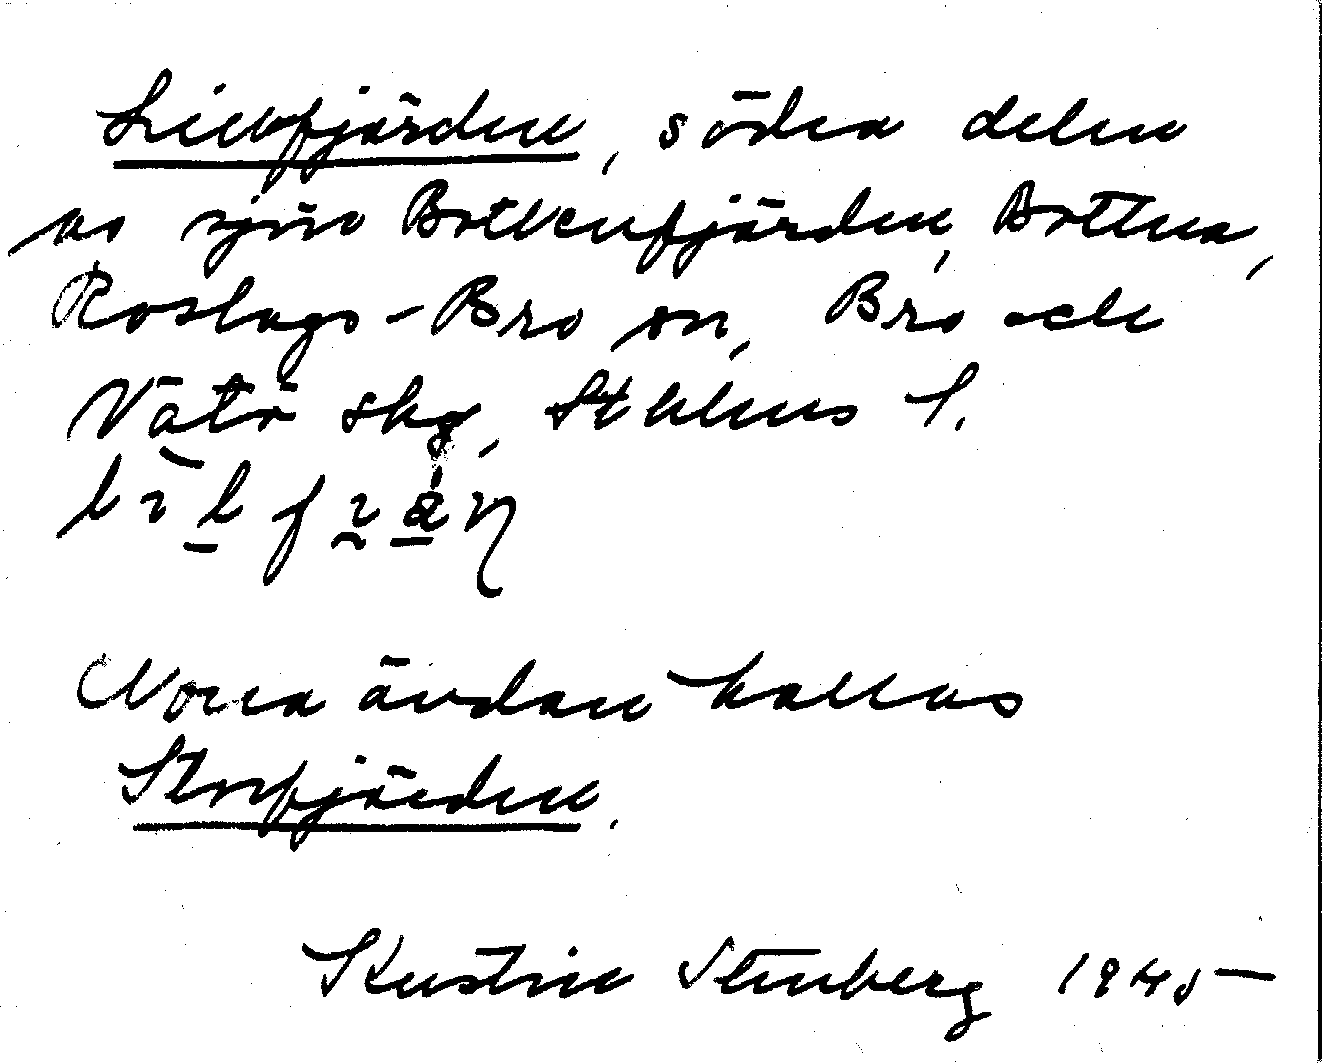 Lillfjärden, södra delen
av sjön Bottenfjärden, Bottna,
Roslags-Bro sn, Bro och
Vätö skg, Sthlms l.
Norra ändan kallas
Storfjärden.
Stenberg 1945